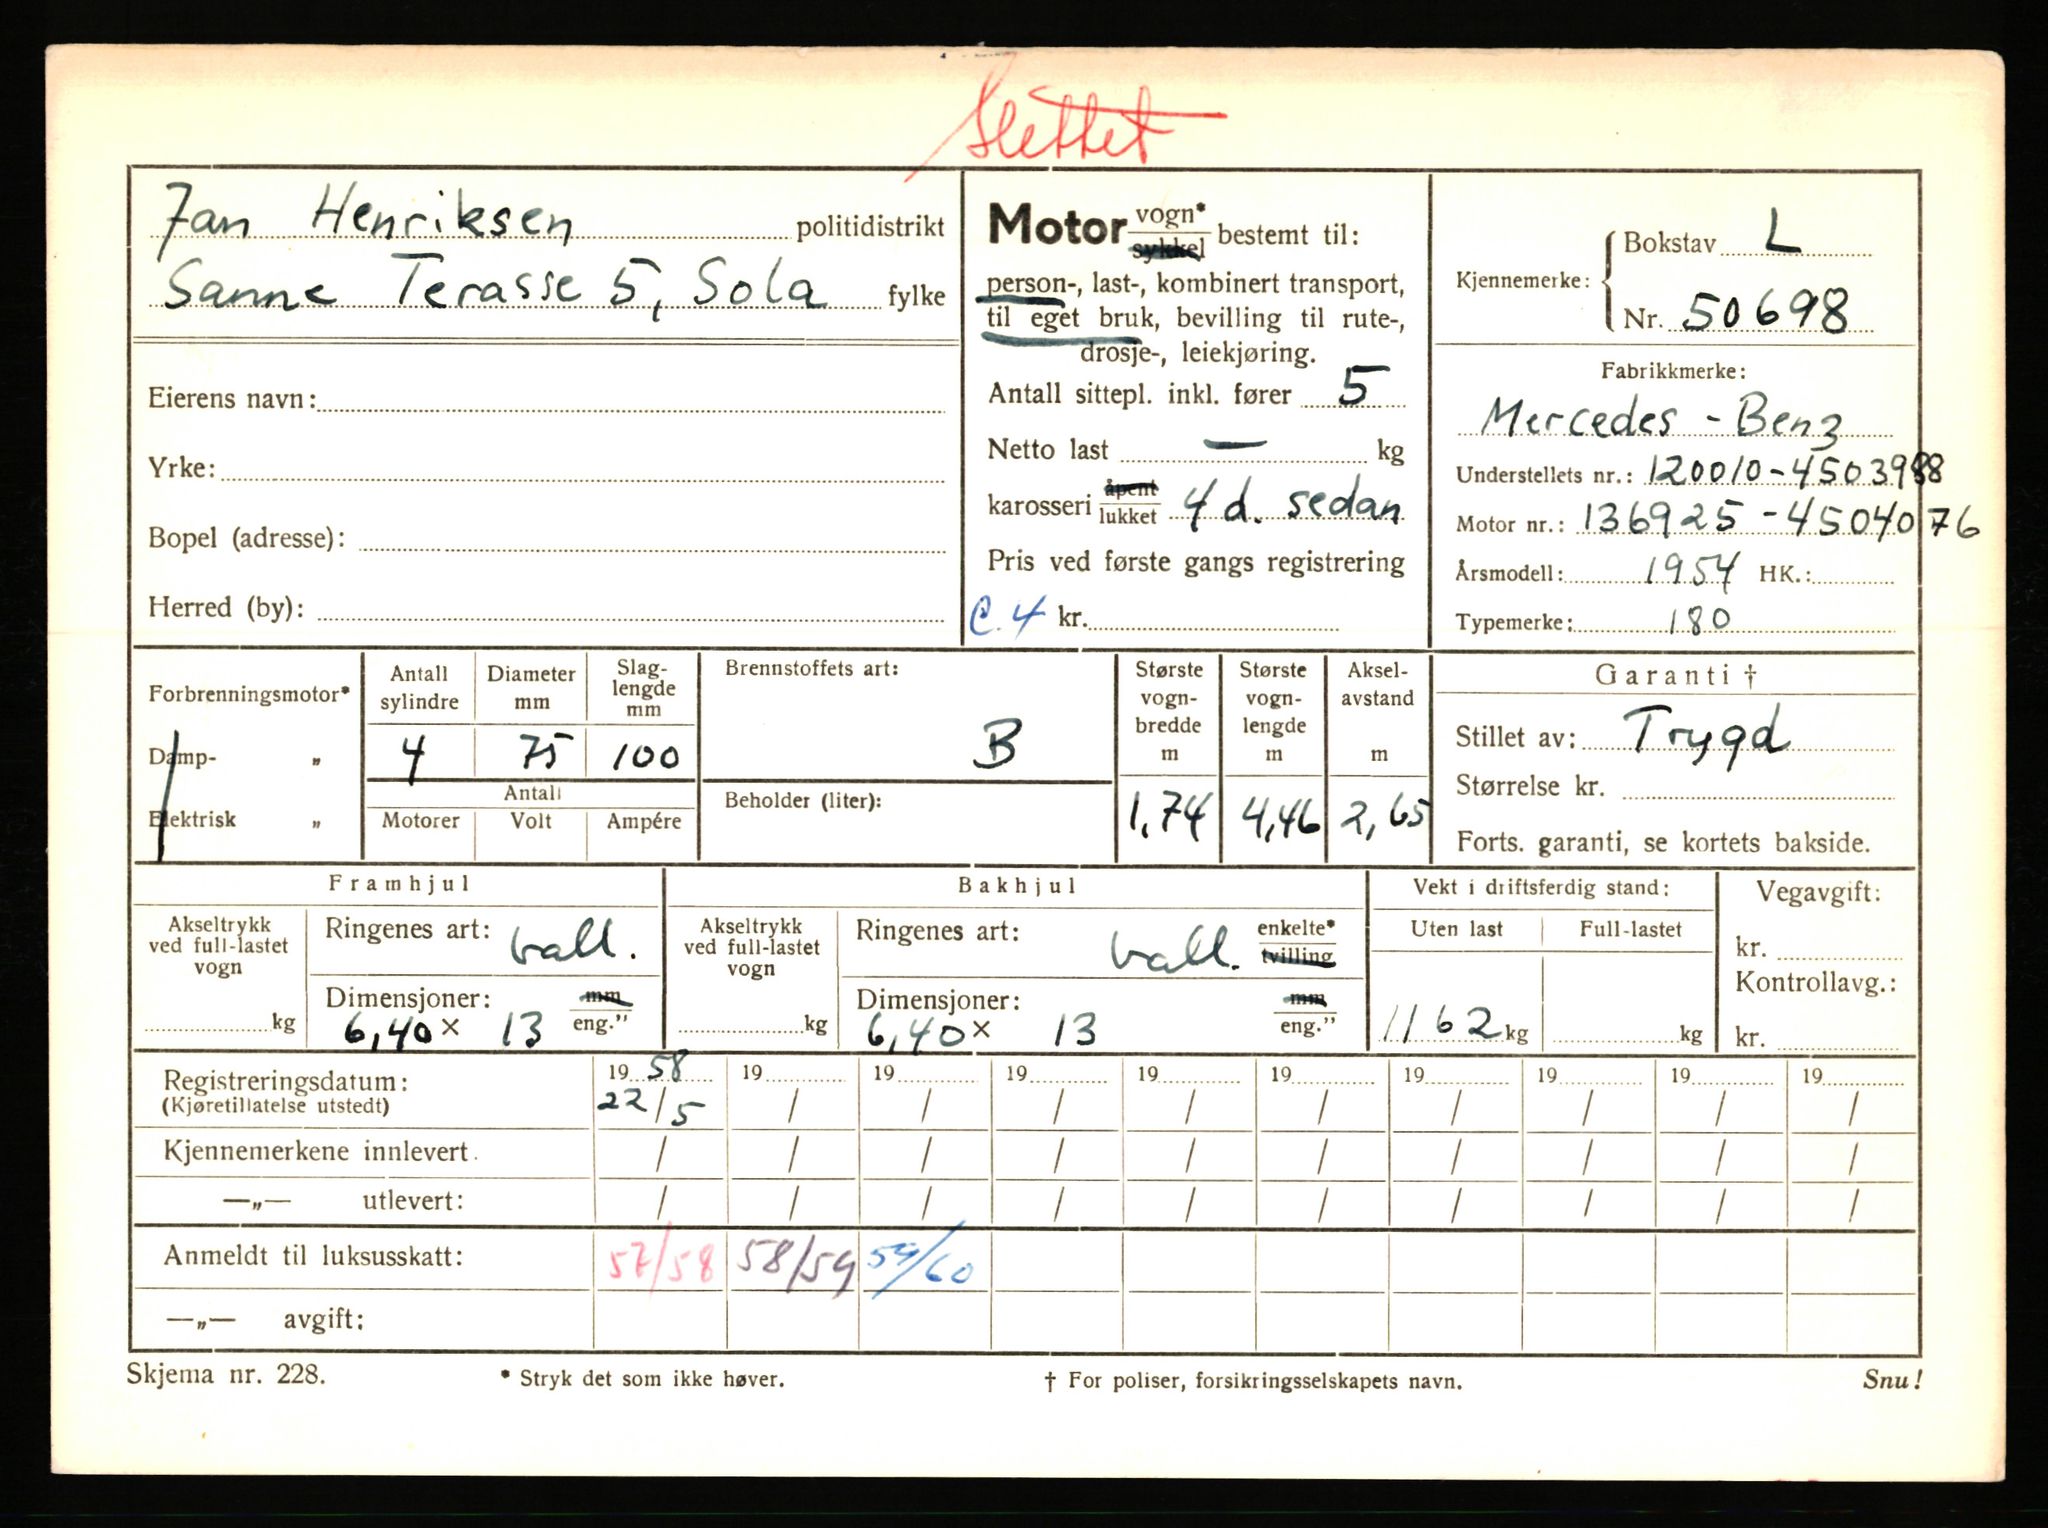 Slettet
Jan Henriksen politidistrikt
Sanne Terasse 5, Sola fylke
Eierens navn:
Yrke:
Bopel (adresse):
Herred (by):
Motor vogn* sykkel bestemt til:
person-, last-, kombinert transport,
til eget bruk, bevilling til rute-,
drosje-, leiekjøring.
Antall sittepl. inkl. fører 5
Netto last — kg
karosseri åpent lukket 4 d. sedan
Pris ved første gangs registrering
C.4 kr.
Kjennemerke: Bokstav L
Nr. 50698
Fabrikkmerke:
Mercedes - Benz
Understellets nr.: 120010-4503988
Motor nr.: 136925-4504076
Årsmodell: 1954 HK.:
Typemerke: 180
Forbrenningsmotor*
Damp- „
Elektrisk „
Antall sylindre Diameter mm Slag-lengde mm
4 75 100
Antall
Motorer Volt Ampére
Brennstoffets art:
B
Beholder (liter):
Største vogn-bredde m Største vogn-lengde m Aksel-avstand m
1,74 4,46 2,65
Garanti †
Stillet av: Trygd
Størrelse kr.
Forts. garanti, se kortets bakside.
Framhjul
Akseltrykk ved full-lastet vogn
kg
Ringenes art: ball.
Dimensjoner: mm
6,40 x 13 eng."
Bakhjul
Akseltrykk ved full-lastet vogn
kg
Ringenes art: ball. enkelte* tvilling
Dimensjoner: mm
6,40 x 13 eng."
Vekt i driftsferdig stand:
Uten last Full-lastet
1162 kg kg
Vegavgift:
kr.
Kontrollavg.:
kr.
Registreringsdatum: 19 58 19 19 19 19 19 19 19 19 19
(Kjøretillatelse utstedt) 22/5 / / / / / / / / /
Kjennemerkene innlevert. / / / / / / / / / /
—„— utlevert: / / / / / / / / / /
Anmeldt til luksusskatt: 57/58 58/59 59/60
—„— avgift:
Skjema nr. 228. * Stryk det som ikke høver. † For poliser, forsikringsselskapets navn. Snu!